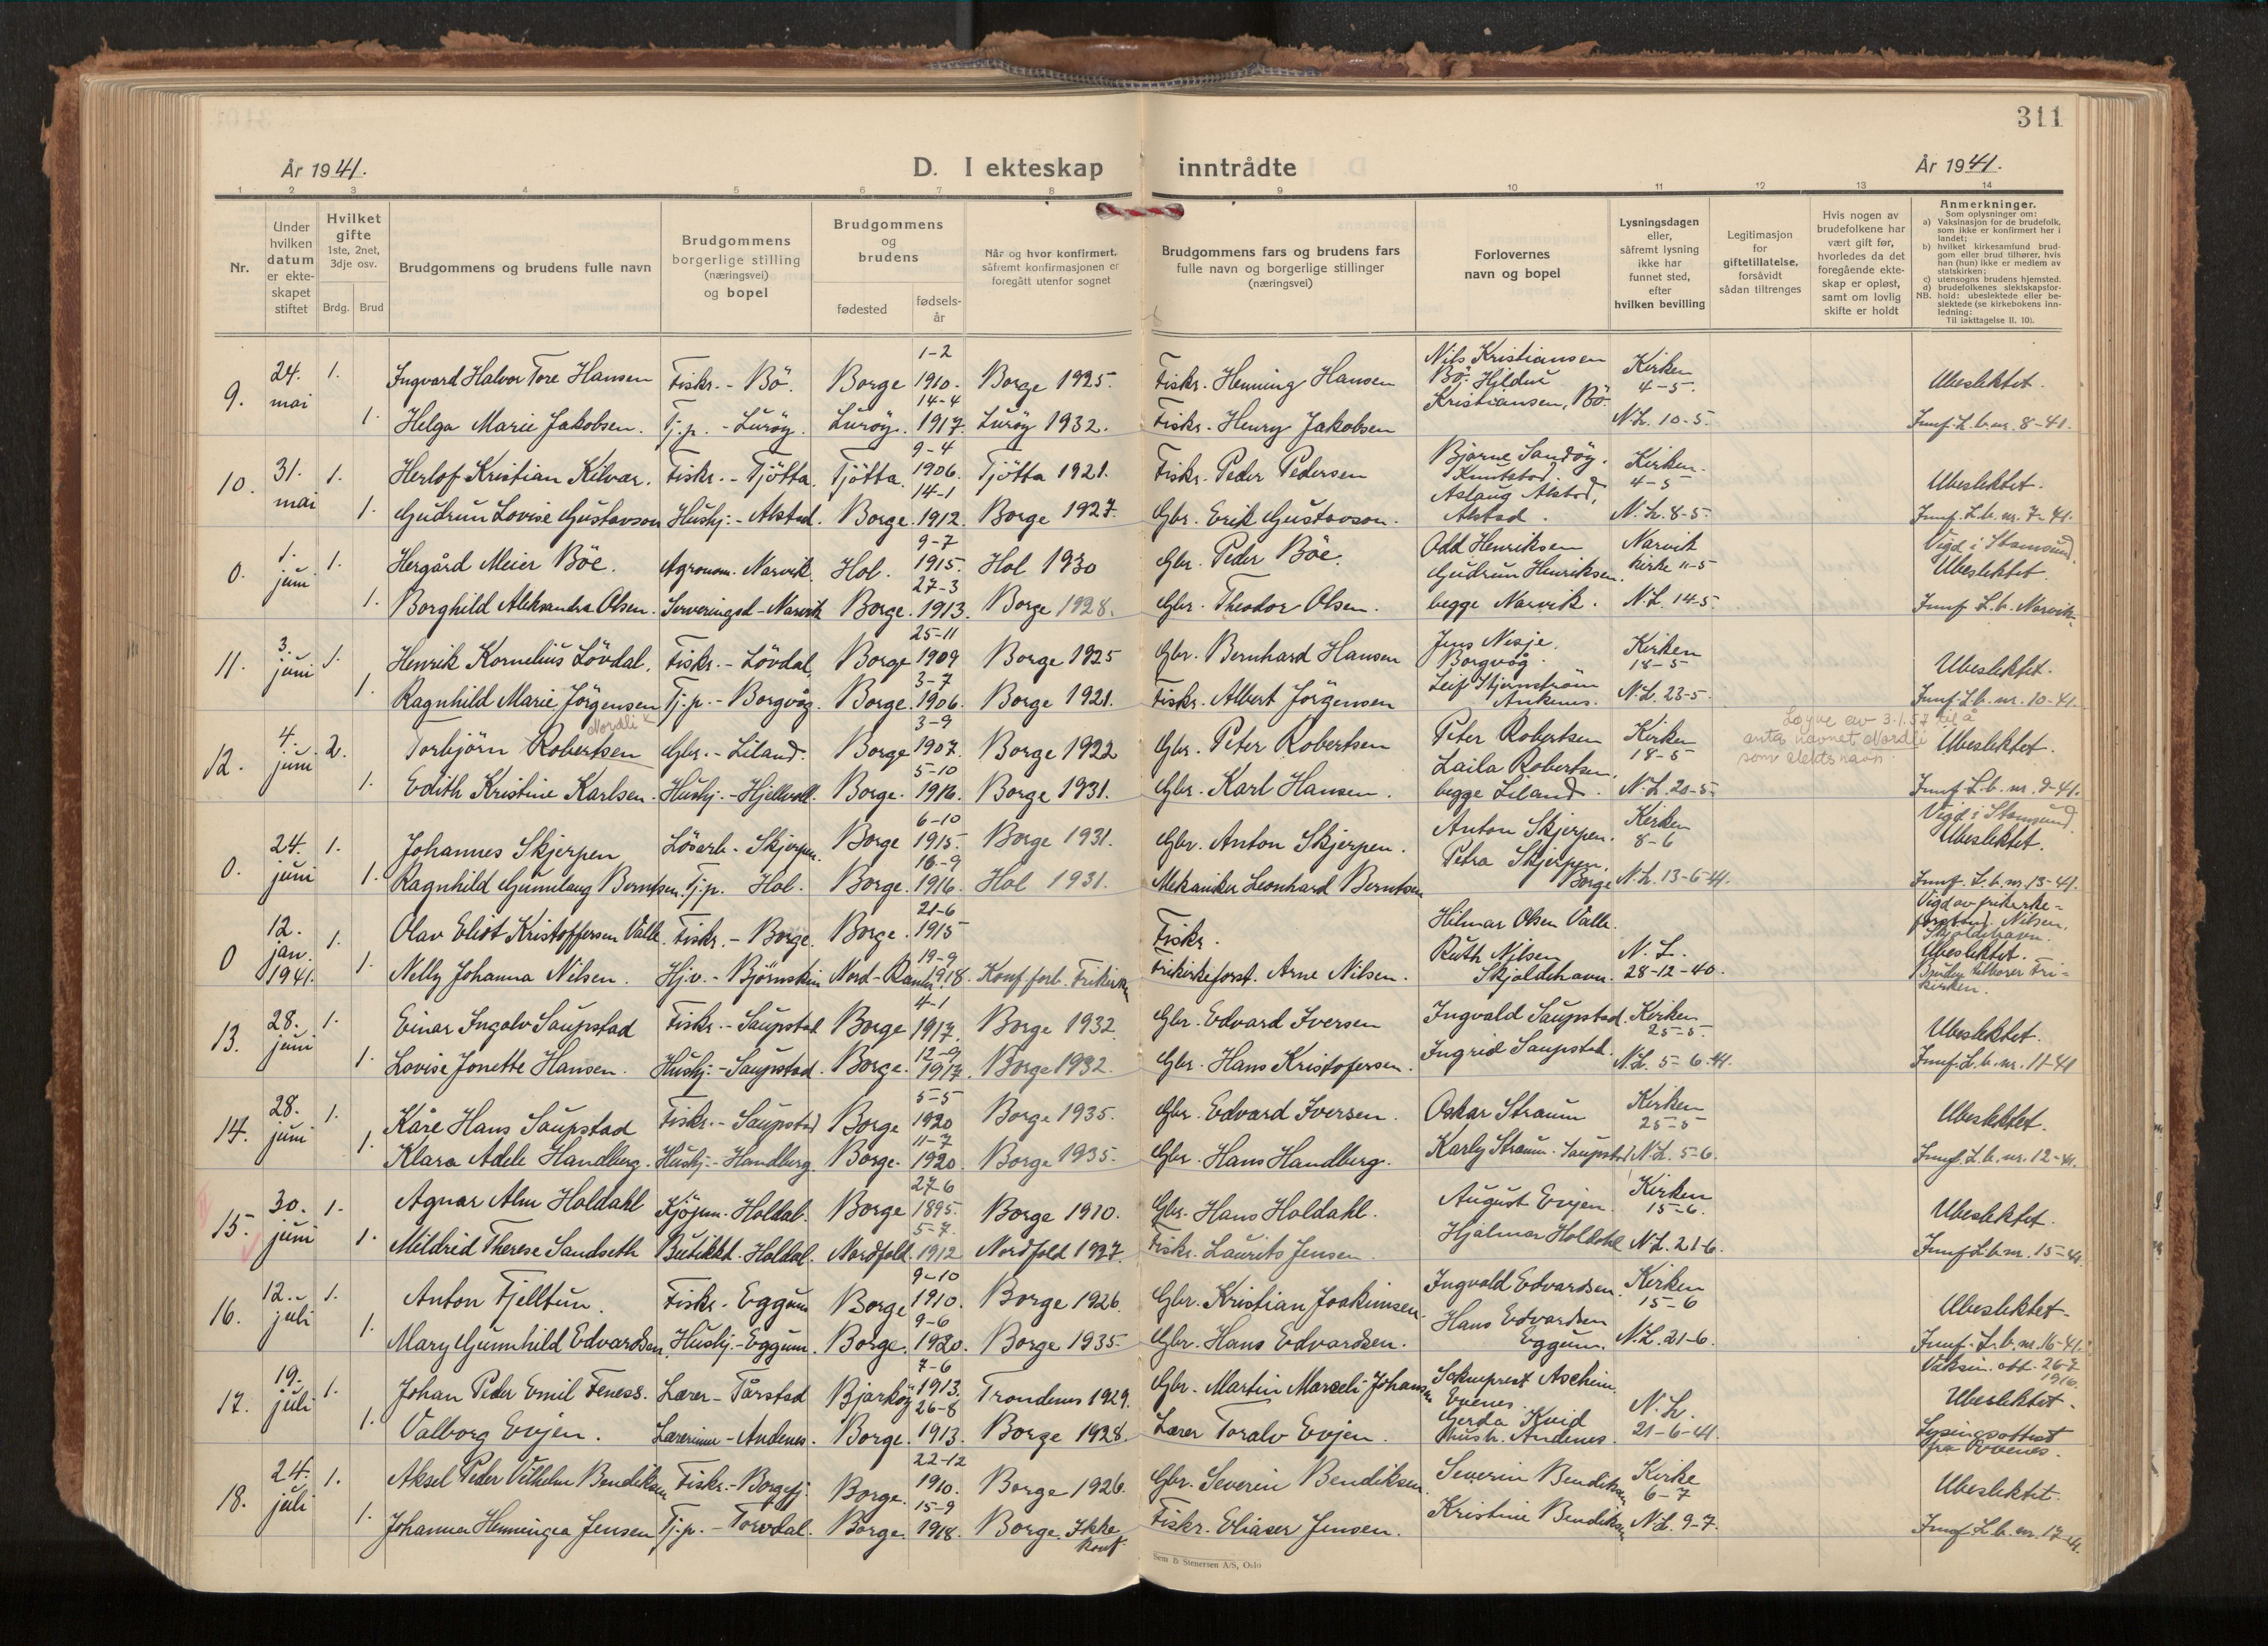 311
År 1941.
D. I ekteskap inntrådte
År 1941.
1 2 3 4 5 6 7 8 9 10 11 12 13 14
Nr.
Under hvilken datum er ekteskapet stiftet
Hvilket gifte 1ste, 2net, 3dje osv.
Brdg. Brud
Brudgommens og brudens fulle navn
Brudgommens borgerlige stilling (næringsvei) og bopel
Brudgommens og brudens
fødested
fødsels-år
Når og hvor konfirmert, såfremt konfirmasjonen er foregått utenfor sognet
Brudgommens fars og brudens fars fulle navn og borgerlige stillinger (næringsvei)
Forlovernes navn og bopel
Lysningsdagen eller, såfremt lysning ikke har funnet sted, efter hvilken bevilling
Legitimasjon for giftetillatelse, forsåvidt sådan tiltrenges
Hvis nogen av brudefolkene har vært gift før, hvorledes da det foregående ekteskap er opløst, samt om lovlig skifte er holdt
Anmerkninger.
Som oplysninger om:
a) Vaksinasjon for de brudefolk, som ikke er konfirmert her i landet;
b) hvilket kirkesamfund brudgom eller brud tilhører, hvis han (hun) ikke er medlem av statskirken;
c) utensogns brudens hjemsted.
d) brudefolkenes slektskapsforhold: ubeslektede eller beslektede (se kirkebokens innledning:
NB. Til iakttagelse II. 10).
9. 24. mai 1. Ingvard Halvor Tore Hansen Fiskr. - Bö. Borge 1-2 1910. Borge 1925. Fiskr. Henning Hansen Nils Kristiansen Bö. Hildur Kristiansen, Bö. Kirken 4-5. Ubeslektet.
1. Helga Marie Jakobsen. Tj.p. - Luröy. Luröy. 14-4 1917. Luröy 1932. Fiskr. Henry Jakobsen N.L. 10-5. Innf. L.b. nr. 8-41.
10. 31. mai 1. Herlof Kristian Kilvær. Fiskr. - Tjötta. Tjötta. 9-4 1906. Tjötta 1921. Fiskr. Peder Pedersen Bjarne Sandöy. Knutstad. Kirken. 4-5 Ubeslektet.
1. Gudrun Lovise Gustavson Hushj. - Alstad. Borge. 14-1 1912. Borge 1927. Gbr. Erik Gustavson. Aslaug Alstad, Alstad. N.L. 8-5. Innf. L.b. nr. 7-41.
0. 1. juni 1. Hergård Meier Böe. Agronom. Narvik. Hol. 9-7 1915. Hol 1930 Gbr. Peder Böe. Odd Henriksen Gudrun Henriksen. Narvik Kirke 11-5 Vigd i Stamsund. Ubeslektet.
1. Borghild Aleksandra Olsen. Serveringsd - Narvik Borge. 27-3 1913. Borge 1928. Gbr. Theodor Olsen. begge Narvik. N.L. 14-5. Innf. L.b. Narvik.
11. 3. juni 1. Henrik Kornelius Lövdal. Fiskr. - Lövdal. Borge 25-11 1909 Borge 1925 Gbr. Bernhard Hansen Jens Nesje. Borgvåg. Kirken 18-5 Ubeslektet.
1. Ragnhild Marie Jörgensen Tj.p. - Borgvåg. Borge. 3-7 1906. Borge 1921. Fiskr. Albert Jörgensen Leif Stjernström Ankenes. N.L. 23-5. Innf. L.b. nr. 10-41.
12. 4. juni 2. Torbjörn Robertsen Nordli x Gbr. - Liland. Borge 3-9 1907. Borge 1922 Gbr. Peter Robertsen Peter Robertsen Kirken 18-5 Løyve av 3.1.57 til å anta navnet Nordli som slektsnavn. Ubeslektet.
1. Edith Kristine Karlsen. Hushj. - Hjellvoll. Borge. 5-10 1916. Borge 1931. Gbr. Karl Hansen. Laila Robertsen. begge Liland. N.L. 20-5. Innf. L.b. nr. 9-41.
0. 24. juni 1. Johannes Skjerpen Lösarb - Skjerpen. Borge 6-10 1915. Borge 1931. Gbr. Anton Skjerpen. Anton Skjerpen. Kirken 8-6 Vigd i Stamsund. Ubeslektet.
1. Ragnhild Gunnlaug Berntsen. Tj.p. Hol. Borge. 16-9 1916. Hol 1931. Mekaniker Leonhard Berntsen Petra Skjerpen. Borge N.L. 13-6-41. Innf. L.b. nr. 13-41.
0 12. jan. 1941. 1. Olav Eliot Kristoffersen Valle. Fiskr. - Borge. Borge. 21-6 1915 Fiskr. Hilmar Olsen Valle. Vigd av frikirkeforstand. Nilsen. Skjoldehavn. Ubeslektet.
1. Nelly Johanna Nilsen. Hjv. - Björnskin Nord-Rana. 19-9 1918. Konf forb. Frikirken Frikirkeforst. Arne Nilsen. Ruth Nilsen Skjoldehavn. N.L. 28-12-40. Bruden tilhører Frikirken.
13. 28. juni 1. Einar Ingolv Saupstad Fiskr. - Saupstad Borge 4-1 1917. Borge 1932. Gbr. Edvard Iversen Ingvald Saupstad. Kirken 25-5. Ubeslektet.
1. Lovise Jonette Hansen. Hushj. - Saupstad. Borge. 12-9 1917. Borge 1932. Gbr. Hans Kristofersen. Ingrid Saupstad. N.L. 5-6-41. Innf. L.b. nr. 11-41
14. 28. juni 1. Kåre Hans Saupstad Fiskr. - Saupstad Borge 5-5 1920 Borge 1935. Gbr. Edvard Iversen. Oskar Straum Kirken 25-5 Ubeslektet.
1. Klara Adele Handberg. Hushj. - Handberg. Borge. 11-7 1920. Borge 1935. Gbr. Hans Handberg. Karly Straum. Saupstad N.L. 5-6. Innf. L.b. nr. 12-41.
15. 30. juni 1. Agnar Alm Holdahl Kjöpm. Holdal. Borge 27-6 1895. Borge 1910. Gbr. Hans Holdahl. August Evjen. Kirken 15-6. Ubeslektet.
1. Mildrid Therese Sandseth Butikkd. Holdal. Nordfold. 5-7. 1912 Nordfold 1927. Fiskr. Laurits Jensen. Hjalmar Holdahl N.L. 21-6. Innf L.b. nr. 15-41.
16. 12. juli 1. Anton Fjelltun. Fiskr. Eggum Borge 9-10 1910. Borge 1926. Gbr. Kristian Joakimsen. Ingvald Edvardsen. Kirken 15-6 Ubeslektet.
1. Mary Gunnhild Edvardsen. Hushj. - Eggum. Borge. 9-6 1920. Borge 1935. Gbr. Hans Edvardsen. Hans Edvardsen Eggum. N.L. 21-6. Innf. L.b. nr. 16-41.
17. 19. juli 1. Johan Peder Emil Feness. Lærer - Tårstad Bjarköy 7-6 1913. Trondenes 1929. Gbr. Martin Marseli Johansen Sokneprest Aschim. Evenes. N.L. Vaksin. att. 26-7 1916. Ubeslektet.
1. Valborg Evjen. Lærerinne - Andenes. Borge. 26-8 1913. Borge 1928. Lærer Toralv Evjen. Gerda Kvid Hustr. Andenes. 21-6-41. Lysingsattest fra Evenes.
18. 24. juli 1. Aksel Peder Vilhelm Bendiksen Fiskr. - Borgefj. Borge. 22-12 1910. Borge 1926. Gbr. Severin Bendiksen. Severin Bendiksen Kirke 6-7 Ubeslektet.
1. Johanna Henningea Jensen Tj.p. - Torvdal. Borge. 15-9 1918. Borge. Ikke konf. Fiskr. Eliaser Jensen. Kristine Bendiksen N.L. 9-7. Innf L.b. nr. 17-41.
Sem & Stenersen A/S, Oslo